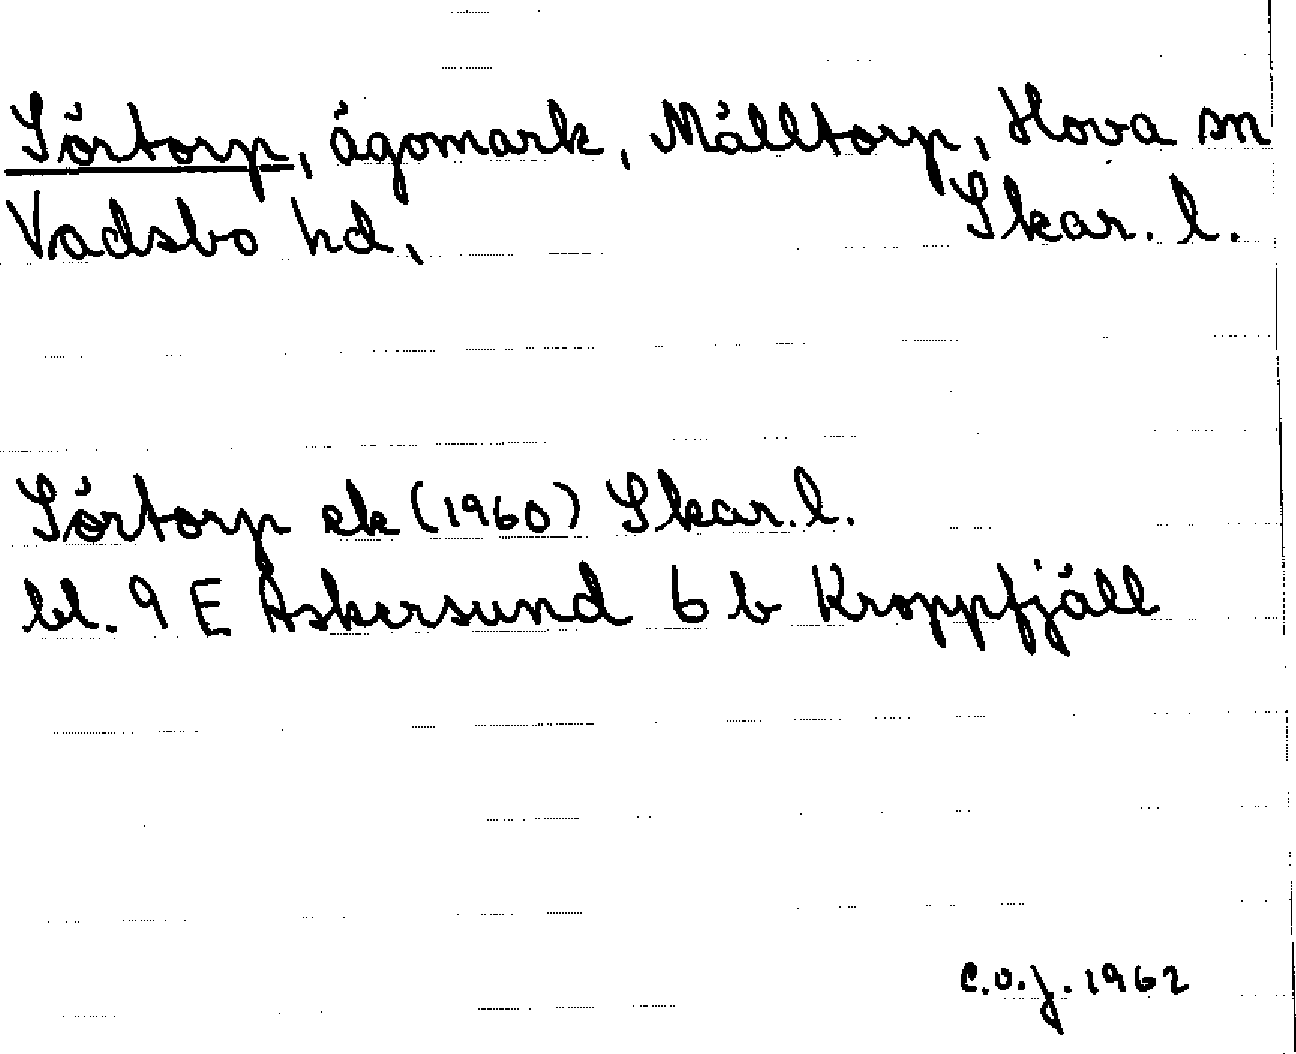 Sörtorp, ägomark, Mälltorp, Hova sn
Vadsbo hd, Skar. l.
Sörtorp ek (1960) Skar. l.
bl. 9 E Askersund 6 b Kroppfjäll
C.O.J. 1962